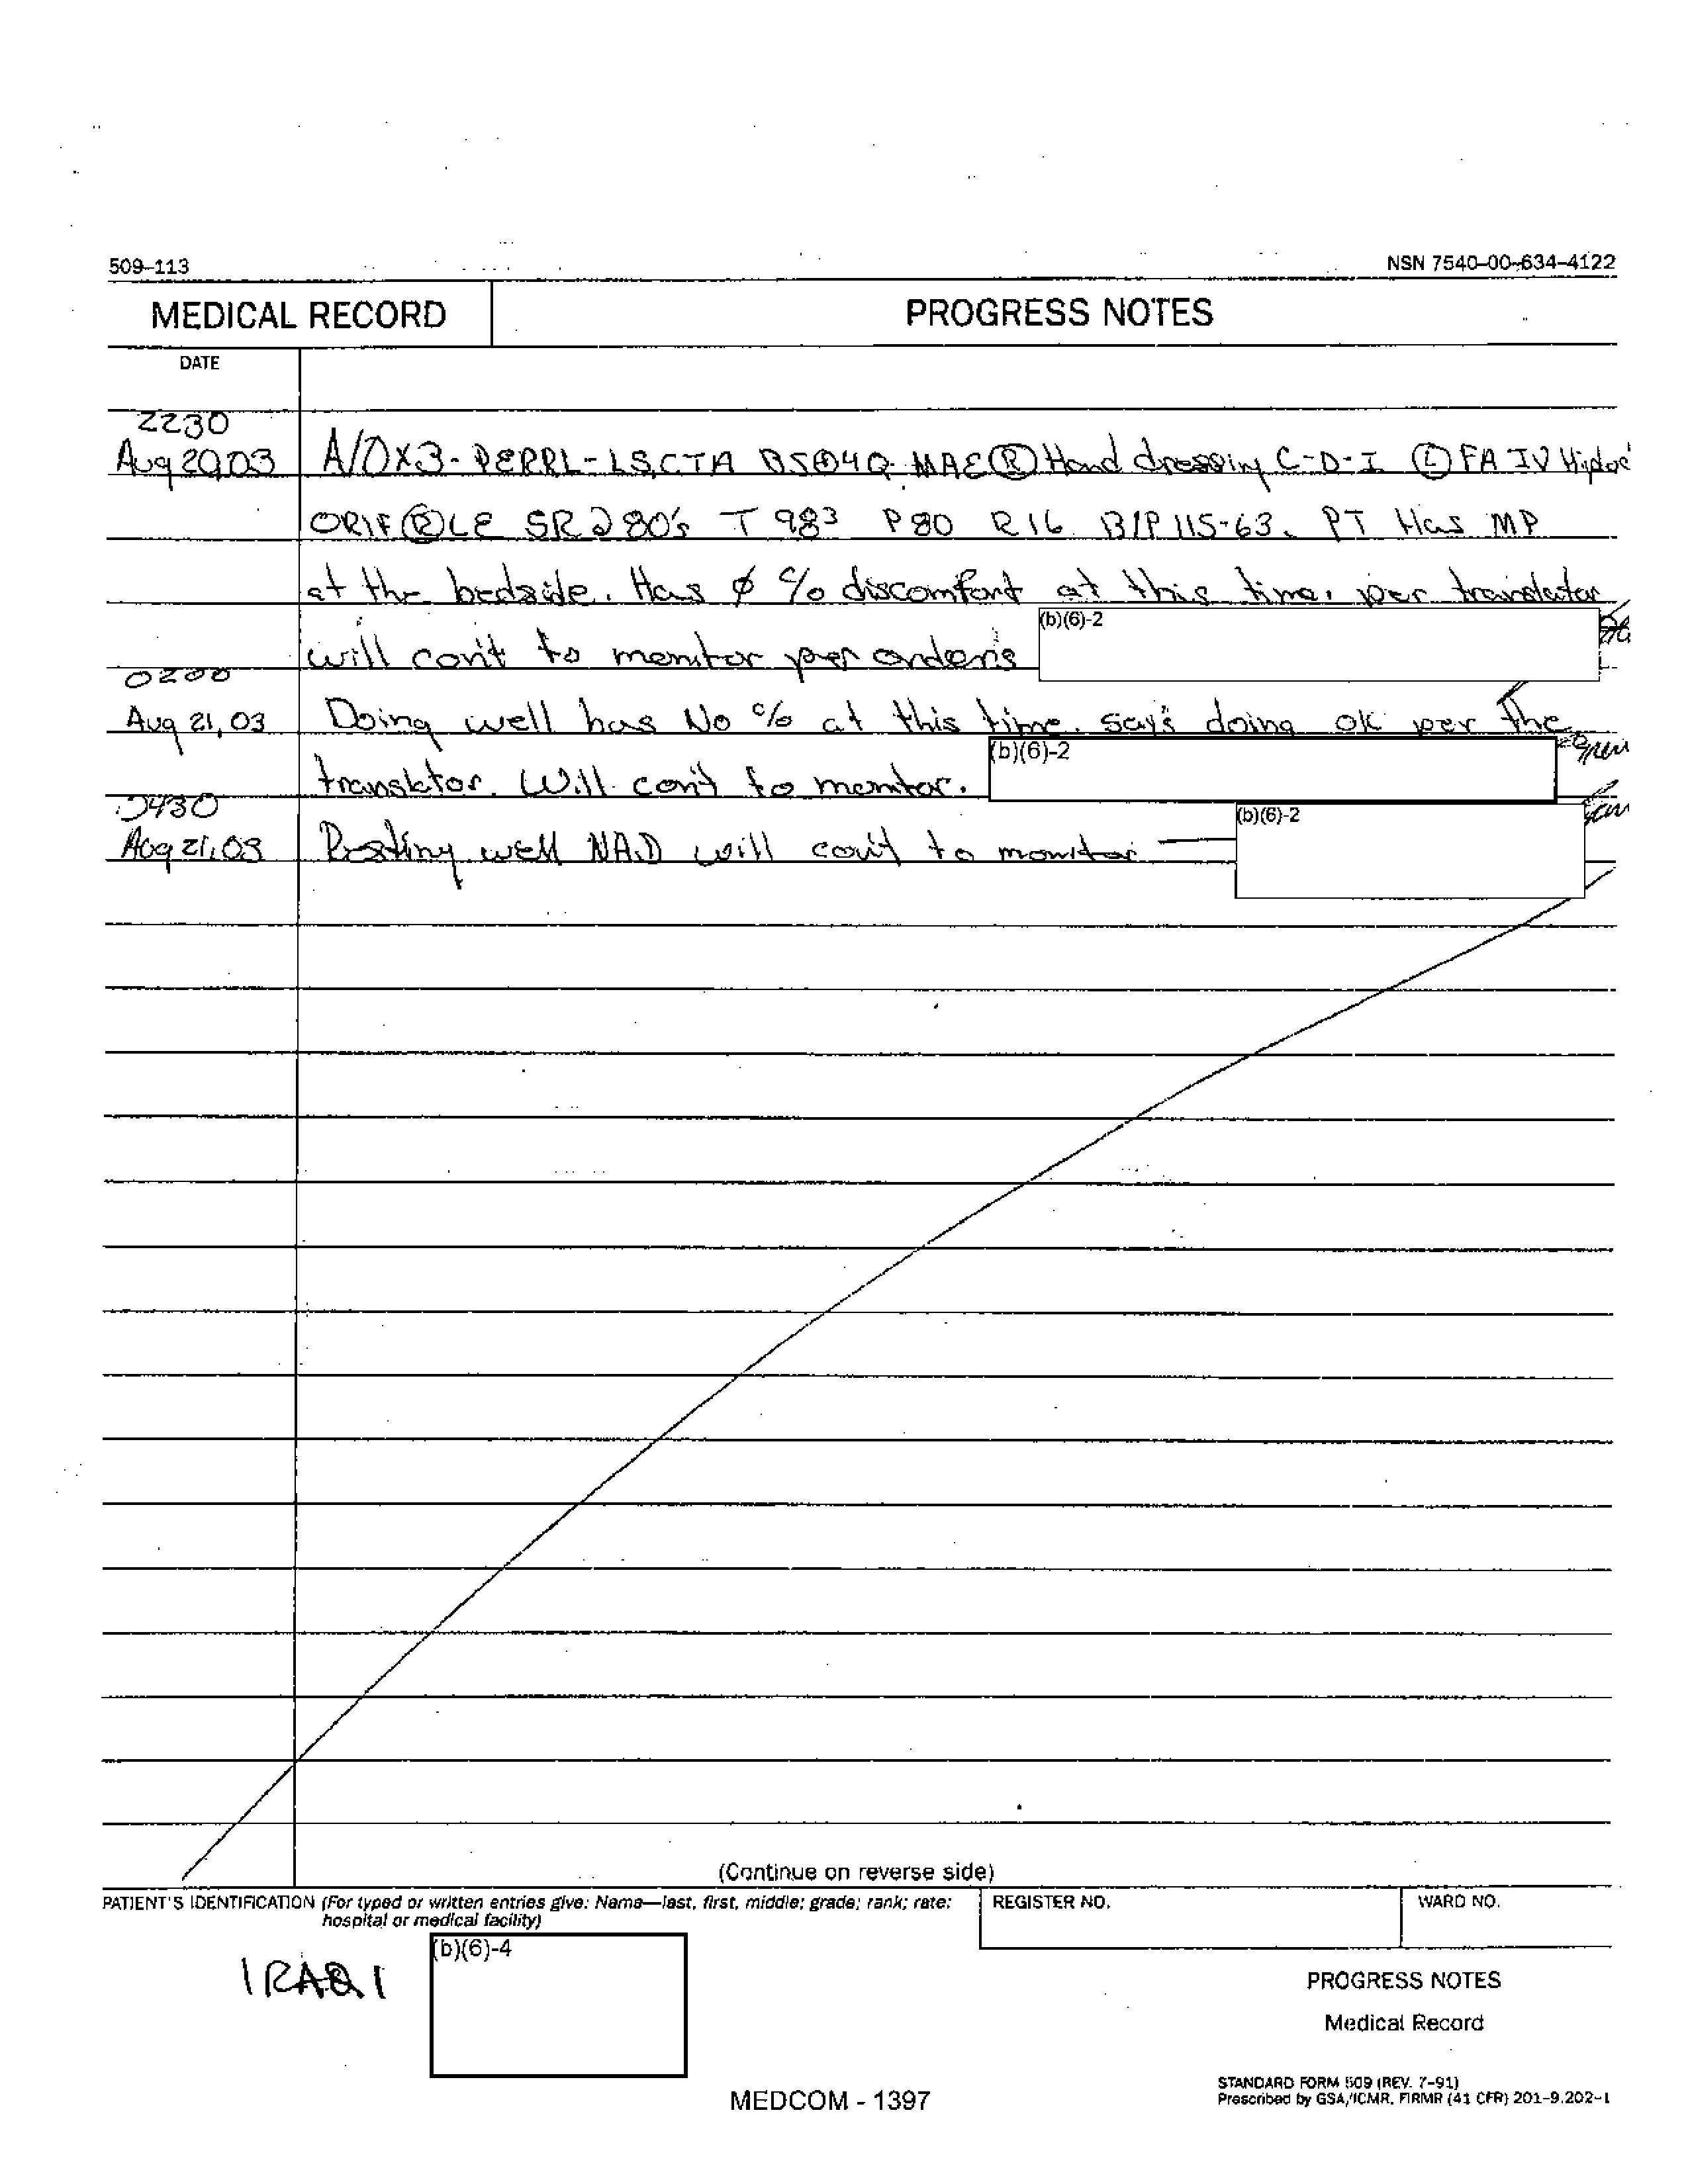 509-113
NSN 7540-00-634-4122
MEDICAL RECORD
PROGRESS NOTES
DATE
2230
Aug 20,03 A/OX3 - PERRL - LS,CTA BS⊕4Q MAE Ⓡ Hand dressing C-D-I Ⓛ FA IV
ORIF Ⓡ LE SR 80's T 98³ P 80 R 16 B/P 115-63. PT Has MP
at the bedside. Has ∅ c/o discomfort at this time. per translator
will con't to monitor per order's
(b)(6)-2
0200
Aug 21,03 Doing well has No c/o at this time. say's doing ok per the
translator. Will con't to monitor.
(b)(6)-2
0430
Aug 21,03 Resting well NAD will con't to monitor
(b)(6)-2
(Continue on reverse side)
PATIENT'S IDENTIFICATION (For typed or written entries give: Name—last, first, middle; grade; rank; rate;
hospital or medical facility)
REGISTER NO.
WARD NO.
IRAQI
(b)(6)-4
PROGRESS NOTES
Medical Record
STANDARD FORM 509 (REV. 7-91)
Prescribed by GSA/ICMR, FIRMR (41 CFR) 201-9.202-1
MEDCOM - 1397